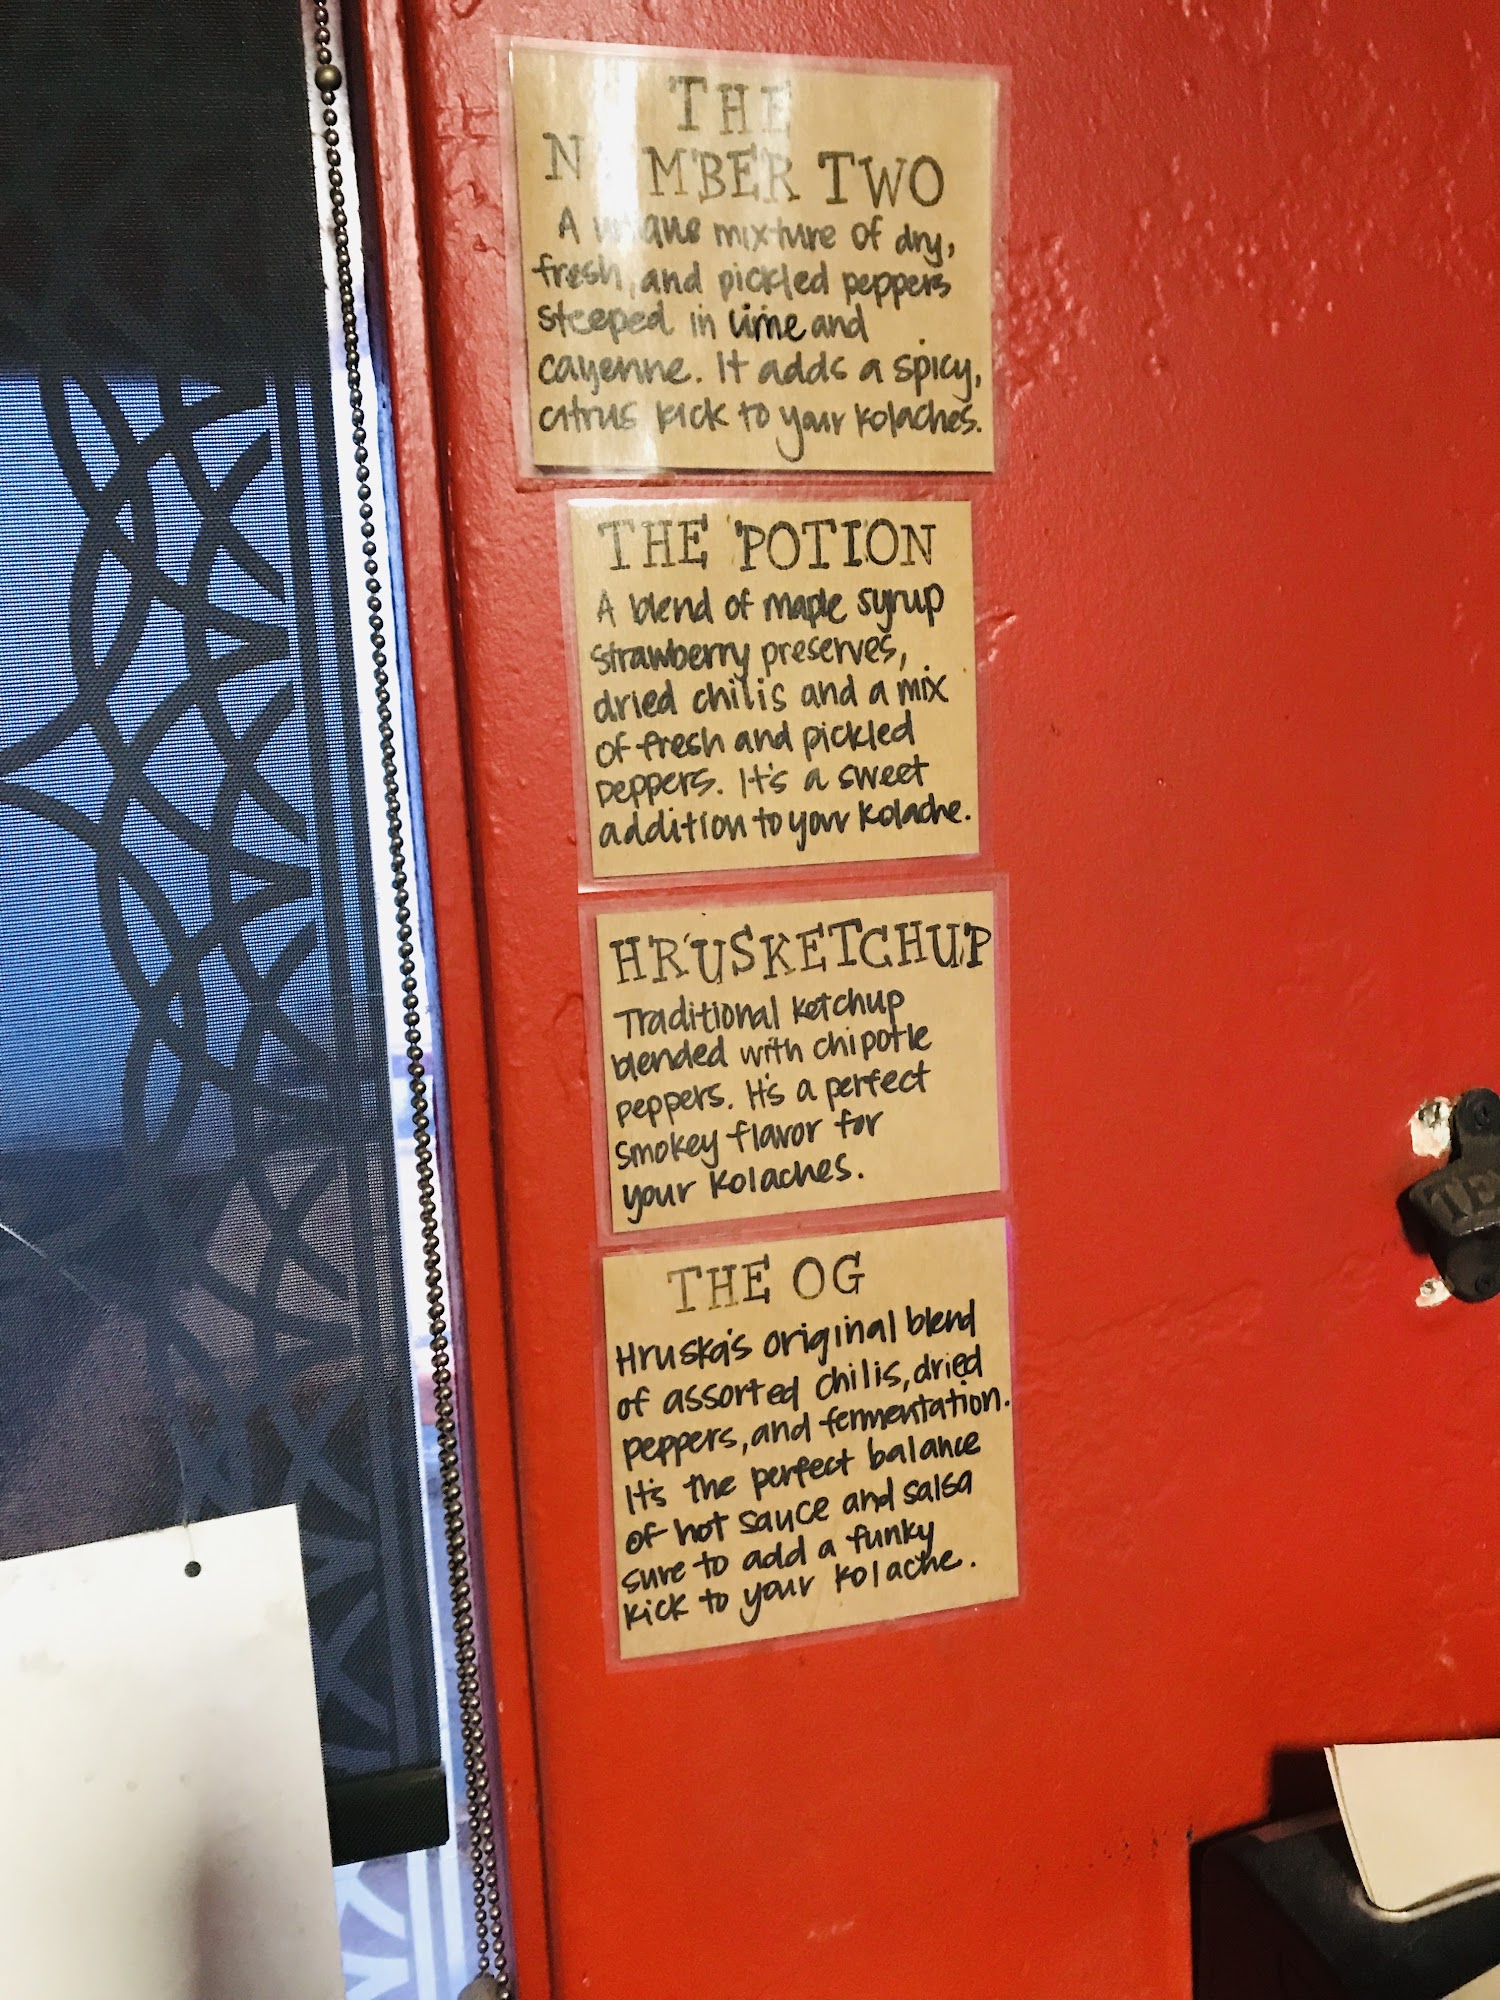 THE
NUMBER TWO
A unique mixture of dry,
fresh, and pickled peppers
steeped in lime and
cayenne. It adds a spicy,
citrus kick to your kolaches.
THE POTION
A blend of maple syrup
strawberry preserves,
dried chilis and a mix
of fresh and pickled
peppers. It's a sweet
addition to your kolache.
HRUSKETCHUP
Traditional ketchup
blended with chipotle
peppers. It's a perfect
smokey flavor for
your kolaches.
THE OG
Hruska's original blend
of assorted chilis, dried
peppers, and fermentation.
It's the perfect balance
of hot sauce and salsa
sure to add a funky
kick to your kolache.